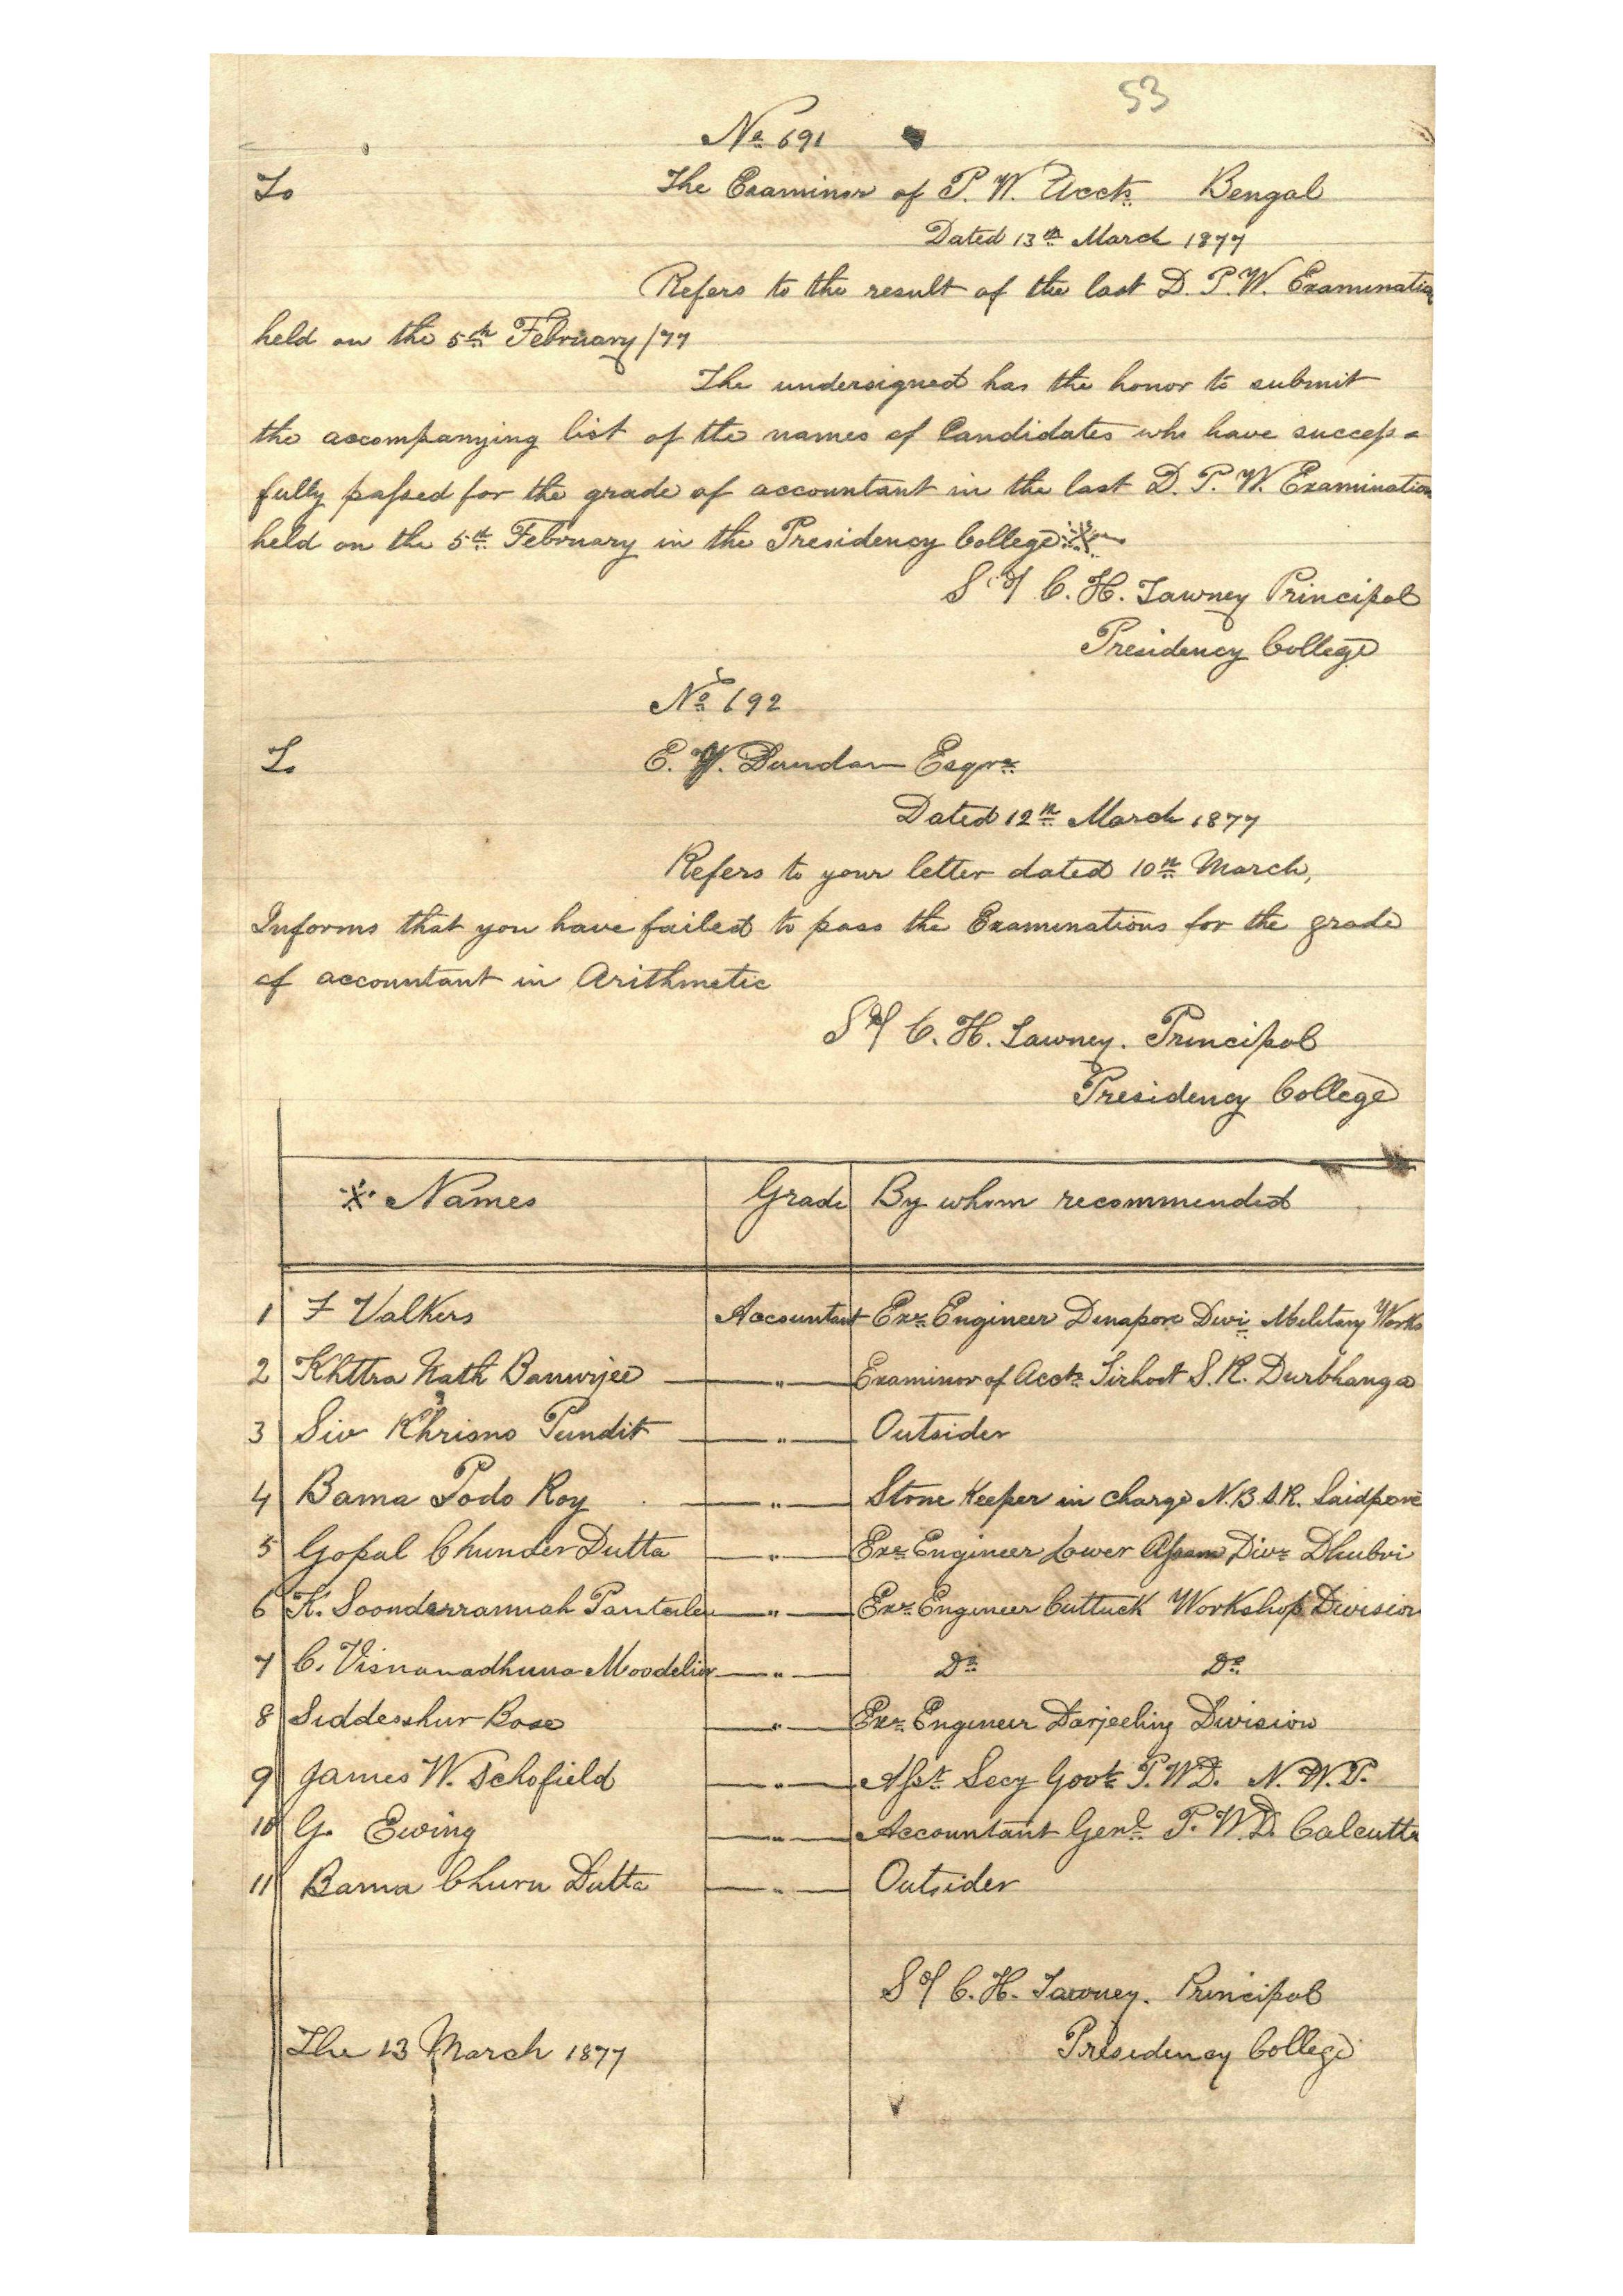 53
No. 691
To The Examiner of P. W. Accts. Bengal
Dated 13th March 1877
Refers to the result of the last D. P. W. Examination
held on the 5th February /77
The undersigned has the honor to submit
the accompanying list of the names of Candidates who have success=
fully passed for the grade of accountant in the last D. P. W. Examination
held on the 5th February in the Presidency College ※
Sd/ C. H. Tawney Principal
Presidency College
No. 692
To E. W. Dundan Esqre.
Dated 12th March 1877
Refers to your letter dated 10th March,
Informs that you have failed to pass the Examinations for the grade
of accountant in Arithmetic
Sd/ C. H. Tawney. Principal
Presidency College
※ Names Grade By whom recommended
1 F Valkers Accountant Exr. Engineer Dinapore Divi. Military Works
2 Khttra Nath Banurjee " Examinor of Accts. Tirhoot S. R. Durbhanga
3 Siv Khrisno Pundit " Outsider
4 Bama Podo Roy " Store Keeper in charge N. B. S. R. Saidpore
5 Gopal Chunder Dutta " Exr. Engineer Lower Assam Divn. Dhubri
6 K. Soonderramiah " Exr. Engineer Cuttuck Workshop Division
7 C. Moodeliar " Do. Do.
8 Siddesshur Bose " Exr. Engineer Darjeeling Division
9 James W. Schofield " Asst. Secy Govt. P. W. D. N. W. P.
10 G. Ewing " Accountant Genl. P. W. D. Calcutta
11 Bama Churn Dutta " Outsider
Sd/ C. H. Tawney. Principal
The 13 March 1877 Presidency College